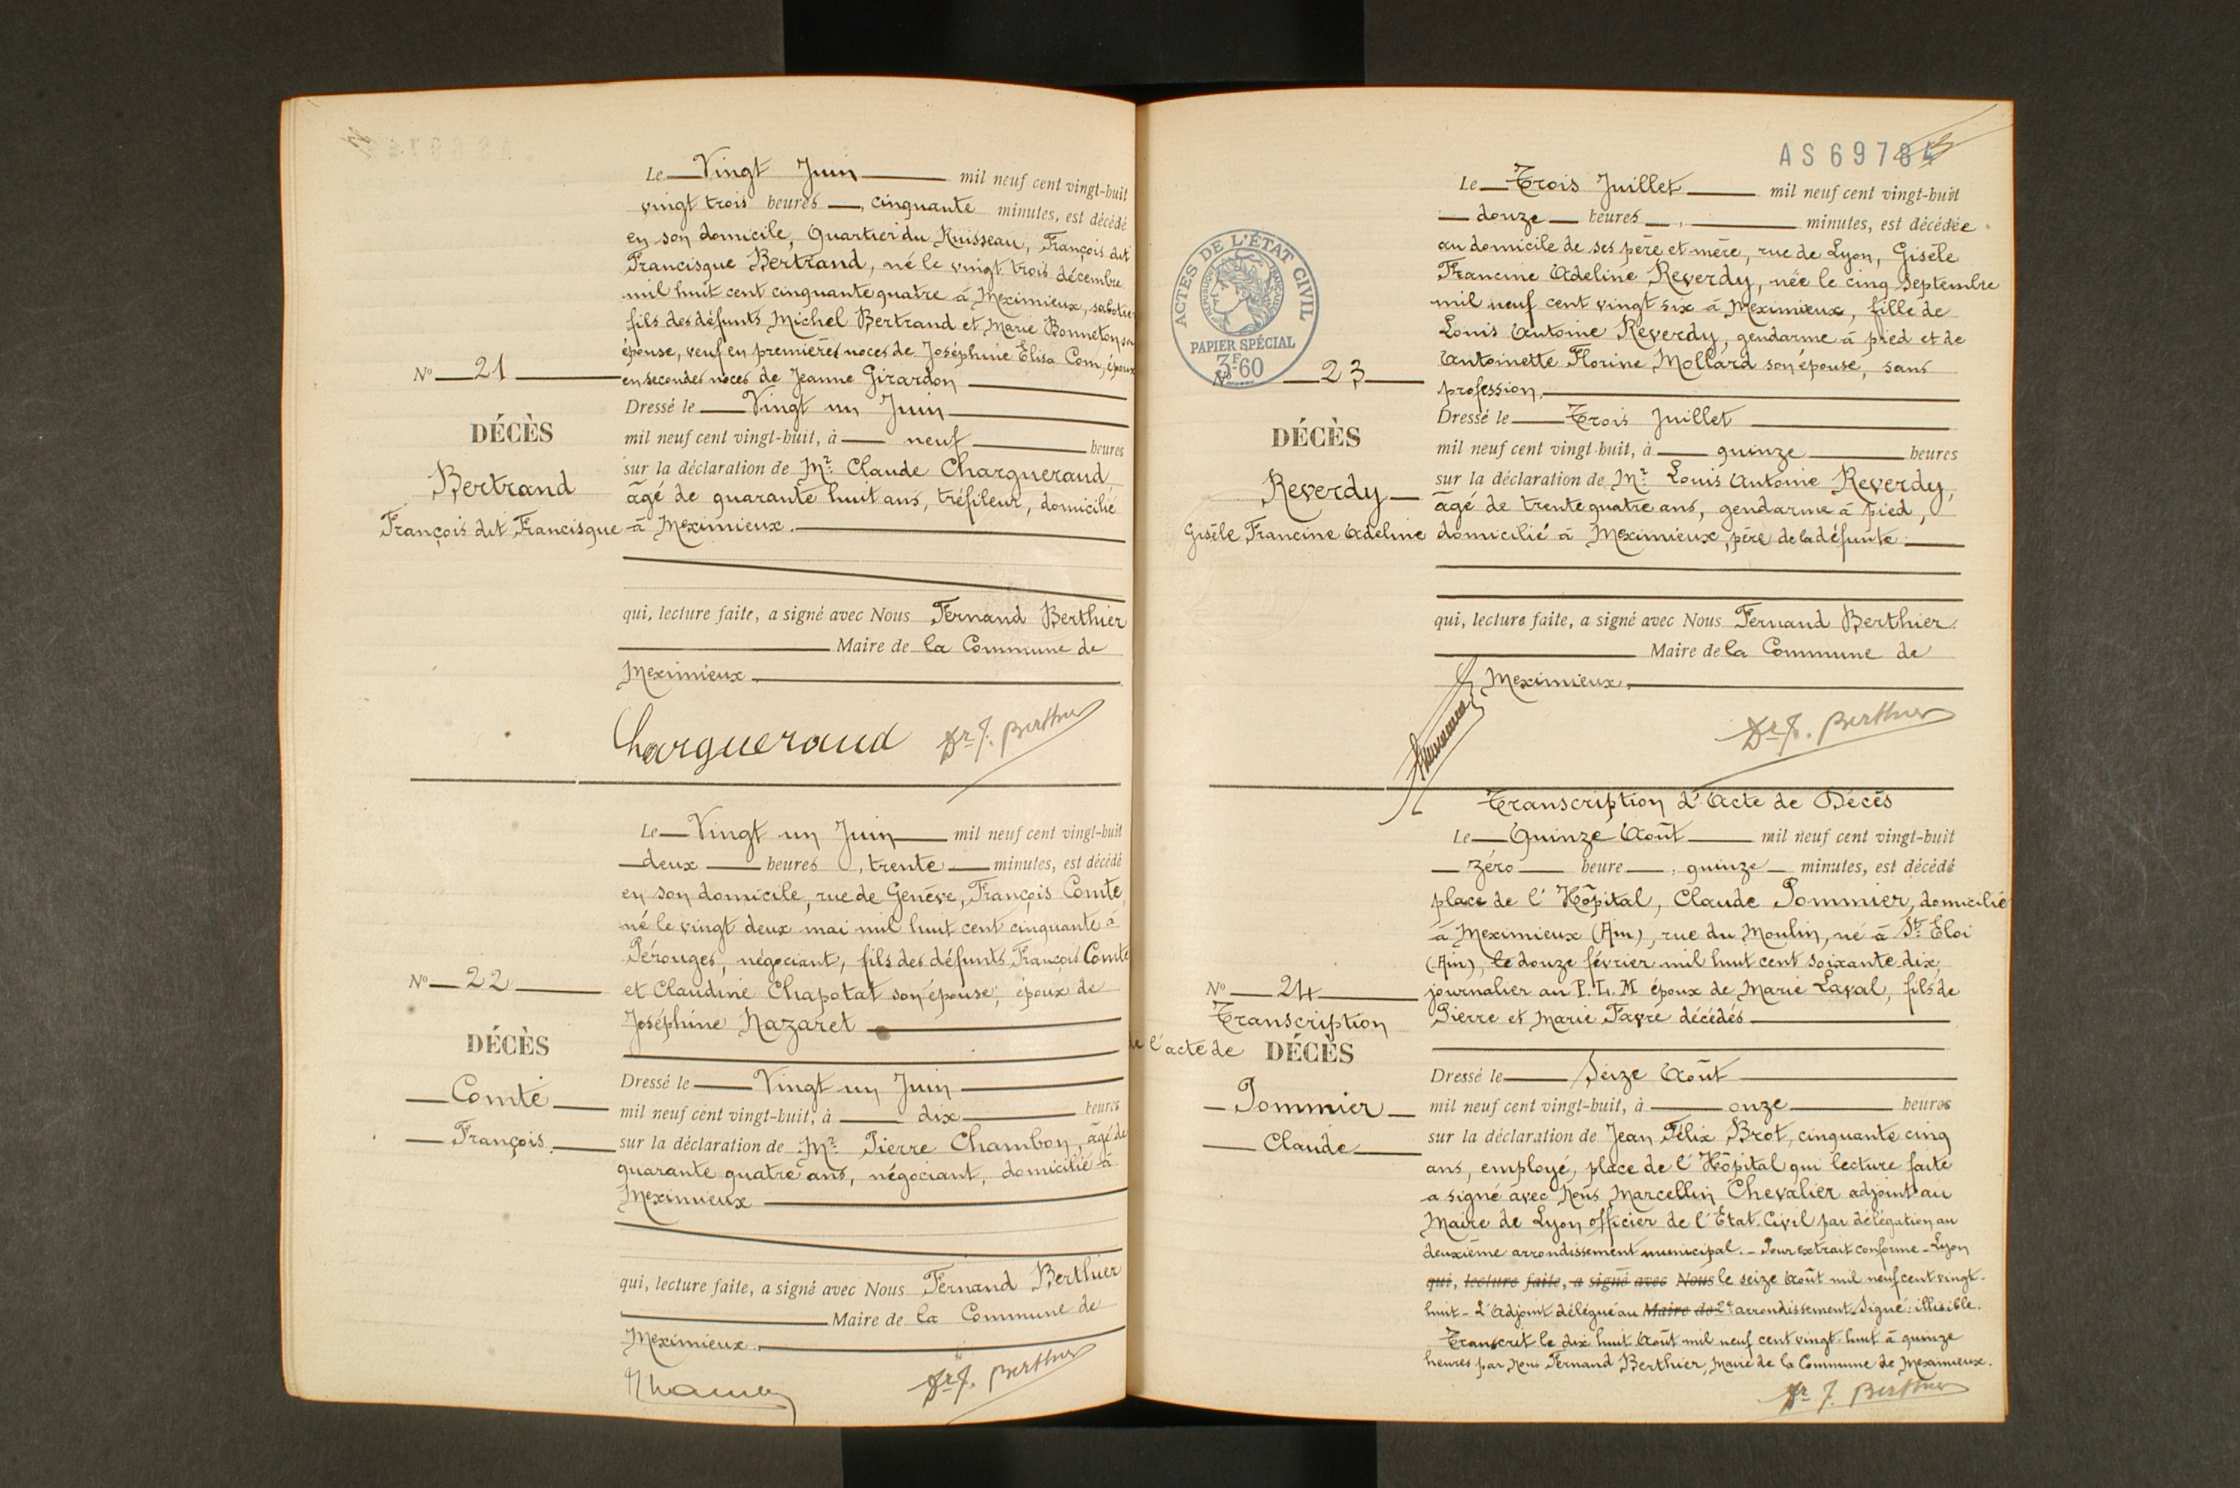 Le Vingt Juin mil neuf cent vingt-huit
vingt trois heures, cinquante minutes, est décédé
en son domicile, Quartier du Ruisseau, François dit
Francisque Bertrand, né le vingt trois décembre
mil huit cent cinquante quatre à Meximieux, sabotier
fils des défunts Michel Bertrand et Marie Bonneton son
épouse, veuf en premières noces de Joséphine Elisa Com, époux
en secondes noces de Jeanne Girardon
No 21
DÉCÈS
Bertrand
François dit Francisque
Dressé le Vingt un Juin
mil neuf cent vingt-huit, à neuf heures
sur la déclaration de Mr. Claude Chargueraud,
âgé de quarante huit ans, tréfileur, domicilié
à Meximieux.
qui, lecture faite, a signé avec Nous Fernand Berthier
Maire de la Commune de
Meximieux.
Chargueraud Dr F. Berthier
Le Vingt un Juin mil neuf cent vingt-huit
deux heures, trente minutes, est décédé
en son domicile, rue de Genève, François Comte,
né le vingt deux mai mil huit cent cinquante à
Pérouges, négociant, fils des défunts François Comte
et Claudine Chapotat son épouse, époux de
Joséphine Nazaret
No 22
DÉCÈS
Comte
François.
Dressé le Vingt un Juin
mil neuf cent vingt-huit, à dix heures
sur la déclaration de Mr. Pierre Chambon, âgé de
quarante quatre ans, négociant, domicilié à
Meximieux
qui, lecture faite, a signé avec Nous Fernand Berthier
Maire de la Commune de
Meximieux.
Dr F. Berthier
AS 6978
ACTES DE L'ÉTAT CIVIL
RÉPUBLIQUE FRANÇAISE
PAPIER SPÉCIAL
3F60
Le Trois Juillet mil neuf cent vingt-huit
douze heures, minutes, est décédée
au domicile de ses père et mère, rue de Lyon, Gisèle
Francine Adeline Reverdy, née le cinq Septembre
mil neuf cent vingt six à Meximieux, fille de
Louis Antoine Reverdy, gendarme à pied et de
Antoinette Florine Mollard son épouse, sans
profession.
No 23
DÉCÈS
Reverdy
Gisèle Francine Adeline
Dressé le Trois Juillet
mil neuf cent vingt-huit, à quinze heures
sur la déclaration de Mr. Louis Antoine Reverdy,
âgé de trente quatre ans, gendarme à pied,
domicilié à Meximieux, père de la défunte.
qui, lecture faite, a signé avec Nous Fernand Berthier.
Maire de la Commune de
Meximieux.
Dr F. Berthier
Transcription d'Acte de Décès
Le Quinze Août mil neuf cent vingt-huit
zéro heure, quinze minutes, est décédé
place de l'Hôpital, Claude Pommier, domicilié
à Meximieux (Ain), rue du Moulin, né à St. Eloi
(Ain), le douze février mil huit cent soixante dix,
journalier au P.L.M époux de Marie Laval, fils de
Pierre et Marie Favre décédés
No 24
Transcription
de l'acte de DÉCÈS
Pommier
Claude
Dressé le Seize Août
mil neuf cent vingt-huit, à onze heures
sur la déclaration de Jean Félix Brot, cinquante cinq
ans, employé, place de l'Hôpital qui lecture faite
a signé avec Nous Marcellin Chevalier adjoint au
Maire de Lyon officier de l'Etat-Civil par délégation au
deuxième arrondissement municipal. - Pour extrait conforme - Lyon
qui, lecture faite, a signé avec Nous le seize Août mil neuf cent vingt-
huit - L'Adjoint délégué au Maire de 2e arrondissement. Signé: illisible.
Transcrit le dix huit Août mil neuf cent vingt-huit à quinze
heures par Nous Fernand Berthier, Maire de la Commune de Meximieux.
Dr F. Berthier